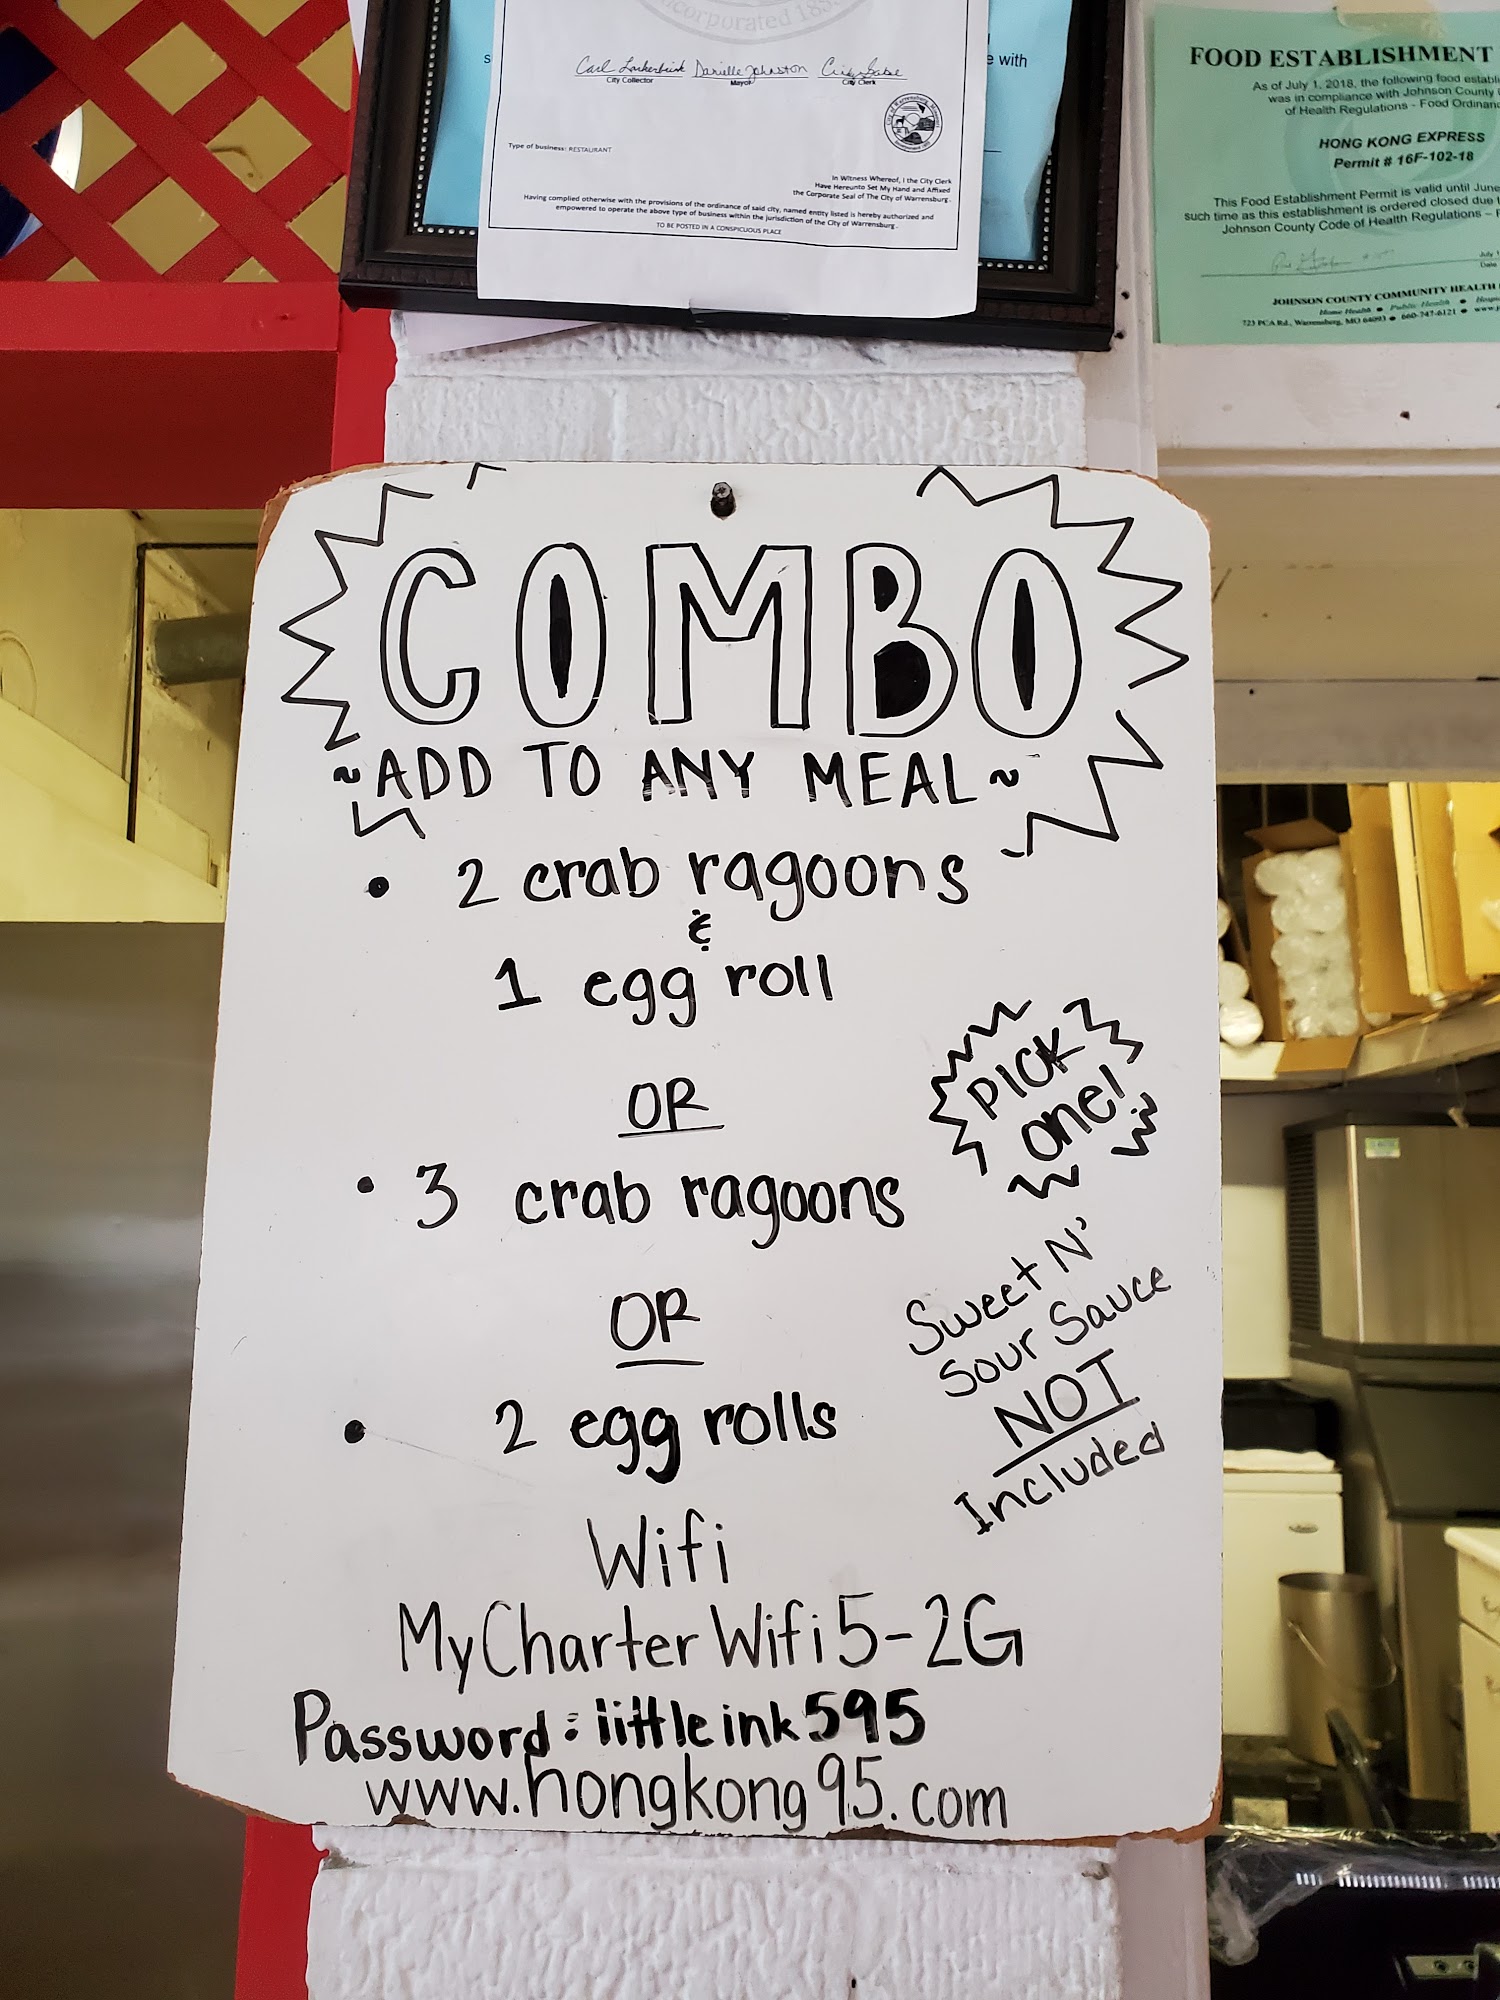 Incorporated 18
s
e with
Carl Lankerbusk Danielle Johnston Cindy Gabel
City Collector Mayor City Clerk
Type of business: RESTAURANT
In Witness Whereof, I the City Clerk
Have Hereunto Set My Hand and Affixed
the Corporate Seal of The City of Warrensburg.
Having complied otherwise with the provisions of the ordinance of said city, named entity listed is hereby authorized and
empowered to operate the above type of business within the jurisdiction of the City of Warrensburg.
TO BE POSTED IN A CONSPICUOUS PLACE
FOOD ESTABLISHMENT
As of July 1, 2018, the following food establi
was in compliance with Johnson County
of Health Regulations - Food Ordinan
HONG KONG EXPRESS
Permit # 16F-102-18
This Food Establishment Permit is valid until June
such time as this establishment is ordered closed due t
Johnson County Code of Health Regulations –
July 1
Date
JOHNSON COUNTY COMMUNITY HEALTH
Home Health • Public Health • Hospi
723 PCA Rd., Warrensburg, MO 64093 • 660-747-6121 • www.j
COMBO
~ADD TO ANY MEAL~
• 2 crab ragoons
&
1 egg roll
OR
PICK
one!
• 3 crab ragoons
OR
Sweet N'
Sour Sauce
NOT
Included
• 2 egg rolls
Wifi
MyCharterWifi5-2G
Password: littleink595
www.hongkong95.com